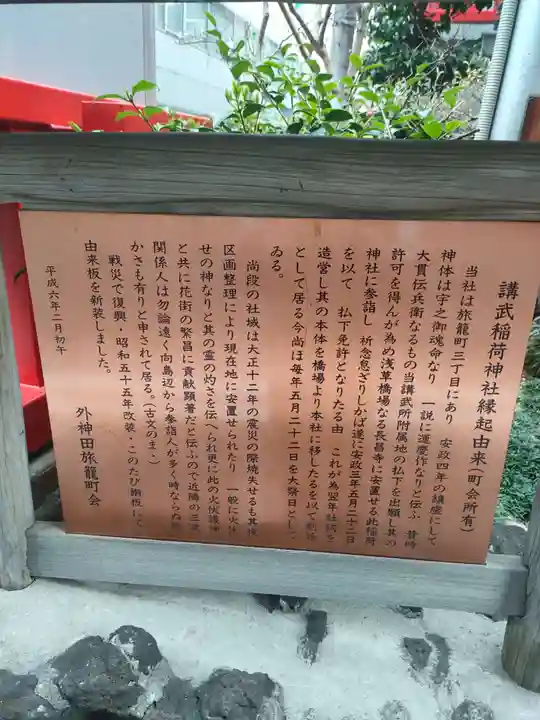 講武稲荷神社縁起由来(町会所有)
当社は旅籠町三丁目にあり 安政四年の鎮座にして
神体は宇之御魂命なり 一説に運慶作なりと伝ふ 昔時
大貫伝兵衛なるもの当講武所附属地の払下を出願し其の
許可を得んが為め浅草橋場なる長昌寺に安置せる此稲荷
神社に参詣し 祈念怠ざりしかば遂に安政三年五月二十二日
を以て 払下免許となりたる由 これが為翌年社祠を
造営し其の本体を橋場より本社に移したるを以て創始
として居る今尚ほ毎年五月二十二日を大祭日として
ゐる。
尚段の社域は大正十二年の震災の際焼失せるも其後
区画整理により現在地に安置せられたり 一般に火伏
せの神なりと其の霊の灼さを伝へられ更に此の火伏護神
と共に花街の繁昌に貢献顕著だと伝ふので近隣の三業
関係人は勿論遠く向島辺から参詣人が多く時ならぬ賑
かさも有りと申されて居る。(古文のまゝ)
戦災で復興・昭和五十五年改装・このたび銅板にし
由来板を新装しました。
平成六年二月初午
外神田旅籠町会